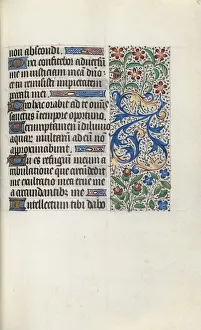 non abscondi.
Dixi confitebor adversum
me iniusticiam meam dño: et
tu remisisti impietatem
peccati mei.
Pro hac orabit ad te omnis
sanctus: in tempore oportuno.
Verumptamen in diluvio
aquarum multarum: ad eum non
approximabunt.
Tu es refugium meum a
tribulatione que circumdedit
me: exultatio mea erue me
a circundantibus me.
Intellectum tibi dabo